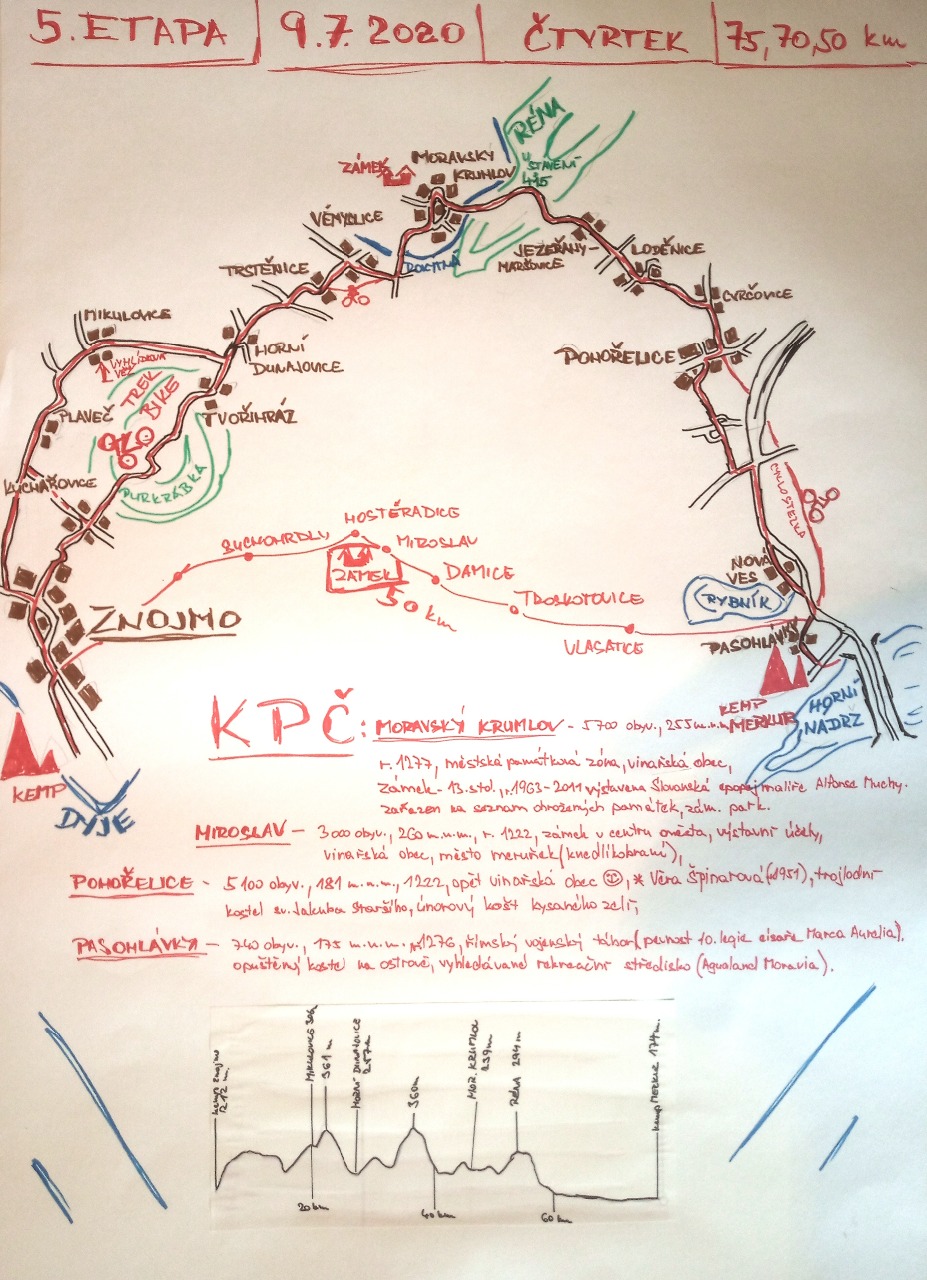 5. ETAPA 9.7. 2020 ČTVRTEK 75,70,50 km
RÉNA
U STAVENÍ
415
ZÁMEK
MORAVSKÝ
KRUMLOV
VÉMYSLICE
ROKYTNÁ
TRSTĚNICE
JEZEŘANY-
MARŠOVICE
LODĚNICE
CVRČOVICE
MIKULOVICE
VYHLÍDKOVÁ
VĚŽ
HORNÍ
DUNAJOVICE
POHOŘELICE
TREK
BIKE
PLAVEČ
TVOŘIHRÁZ
KUCHAŘOVICE
PURKRÁBKA
CYKLOSTEZKA
SUCHOHRDLY
HOSTĚRADICE
MIROSLAV
ZÁMEK
DAMICE
50 km
TROSKOTOVICE
VLASATICE
NOVÁ
VES
RYBNÍK
PASOHLÁVKY
ZNOJMO
KEMP
MERKUR
HORNÍ
NÁDRZ
KEMP
DYJE
KPČ: MORAVSKÝ KRUMLOV - 5700 obyv., 255 m.n.m.
r. 1277, městská památková zóna, vinařská obec,
zámek - 13. stol., r. 1963-2011 výstavena Slovanská epopej malíře Alfonse Muchy.
zařazen na seznam ohrožených památek, zám. park.
MIROSLAV - 3000 obyv., 260 m.n.m., r. 1222, zámek v centru města, výstavní účely,
vinařská obec, město meruněk (knedlíkobraní),
POHOŘELICE - 5100 obyv., 181 m.n.m., 1222, opět vinařská obec ☺, * Věra Špinarová (1951), trojlodní
kostel sv. Jakuba staršího, únorový košt kysaného zelí,
PASOHLÁVKY - 740 obyv., 175 m.n.m., r. 1276, římský vojenský tábor (pevnost 10. legie císaře Marca Aurelia).
opuštěný kostel na ostrově, vyhledávané rekreační středisko (Aqualand Moravia).
Kemp Znojmo
212 m.
MIKULOVICE 306
361 m
HORNÍ DUNAJOVICE
257 m
360m
MOR. KRUMLOV
239 m
RÉNA 294 m.
Kemp MERKUR 174 m.
20 km
40 km
60 km